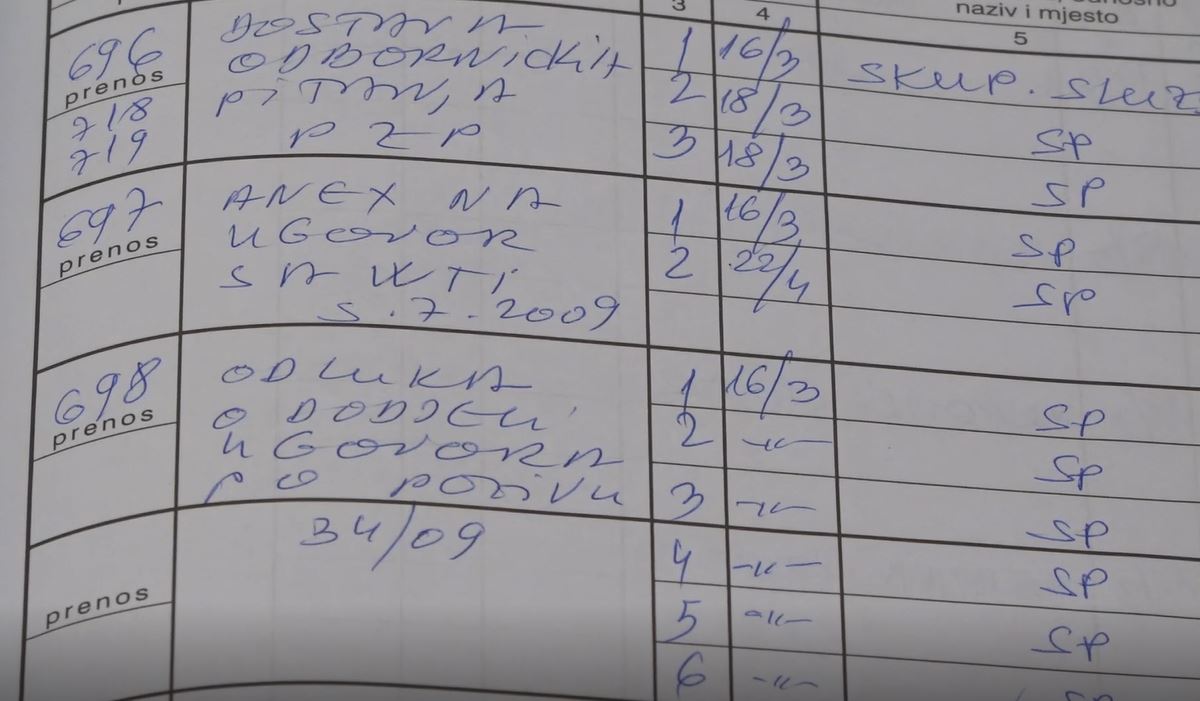 3 4 naziv i mjesto
5
696 DOSTAVA 1 16/3 SKUP. SLUŽ.
prenos ODBORNičkiH 2 18/3 SP
718 PiTAN, A 3 18/3 SP
719 PZP
697 ANEX NA 1 16/3 SP
prenos UGOVOR 2 22/4 SP
SA WTi
5.7.2009
698 ODLUKA 1 16/3 SP
prenos O DODJELi 2 -"- SP
UGOVORA 3 -"- SP
PO POZiVU
34/09 4 -"- SP
prenos 5 -"- SP
6 -"- SP